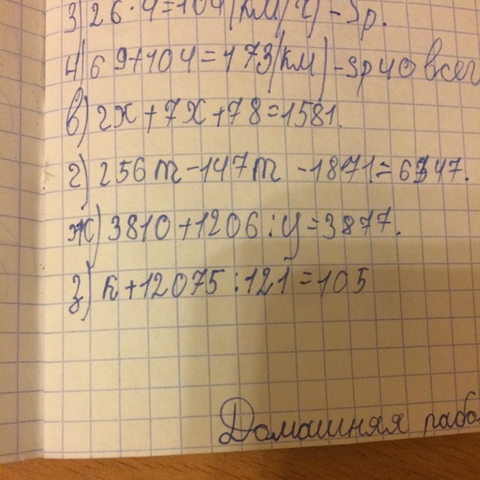 3) 26·4=104(км/ч)-Sр.
4) 69+104=173(км)-Sр40 всег
в) 2x+7x+78=1581.
г) 256m-147m-1871=6347.
ж) 3810+1206:y=3877.
з) k+12075:121=105
Домашняя рабо